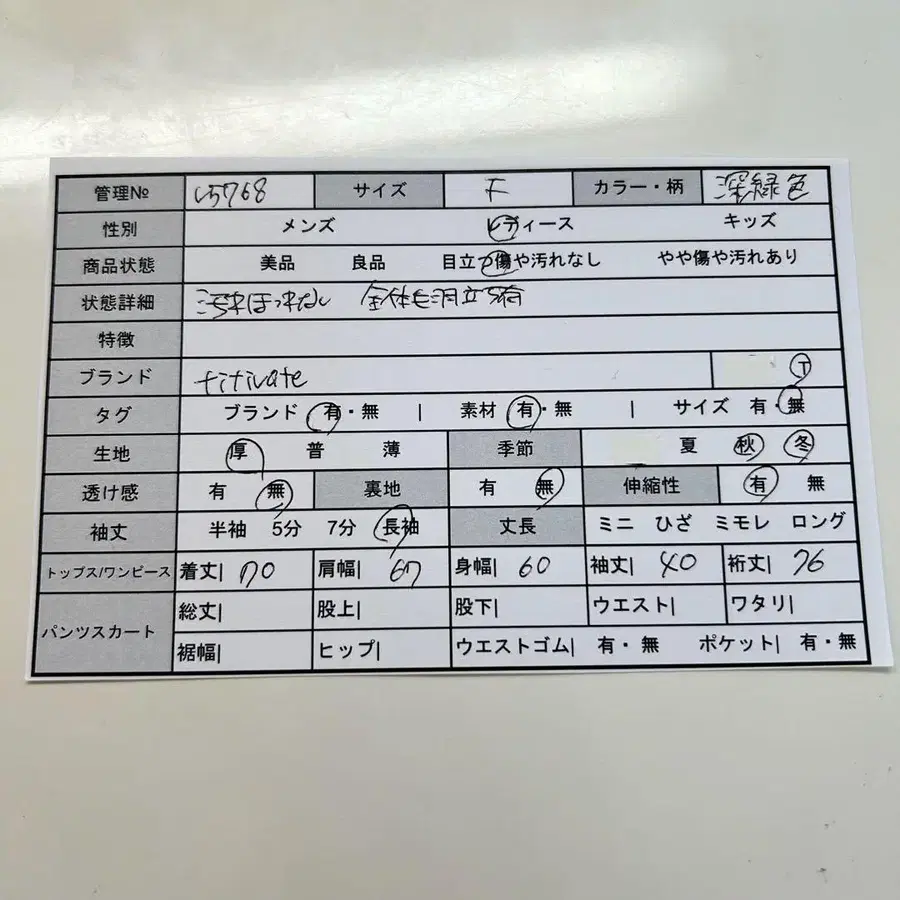 管理№ い5768 サイズ F カラー・柄 深緑色
性別 メンズ レディース キッズ
商品状態 美品 良品 目立つ傷や汚れなし やや傷や汚れあり
状態詳細 汚れほつれなし 全体毛羽立ち有
特徴
ブランド titivate T
タグ ブランド 有・無 | 素材 有・無 | サイズ 有・無
生地 厚 普 薄 季節 夏 秋 冬
透け感 有 無 裏地 有 無 伸縮性 有 無
袖丈 半袖 5分 7分 長袖 丈長 ミニ ひざ ミモレ ロング
トップス/ワンピース 着丈| 70 肩幅| 67 身幅| 60 袖丈| 40 裄丈| 76
パンツスカート 総丈| 股上| 股下| ウエスト| ワタリ|
裾幅| ヒップ| ウエストゴム| 有・無 ポケット| 有・無